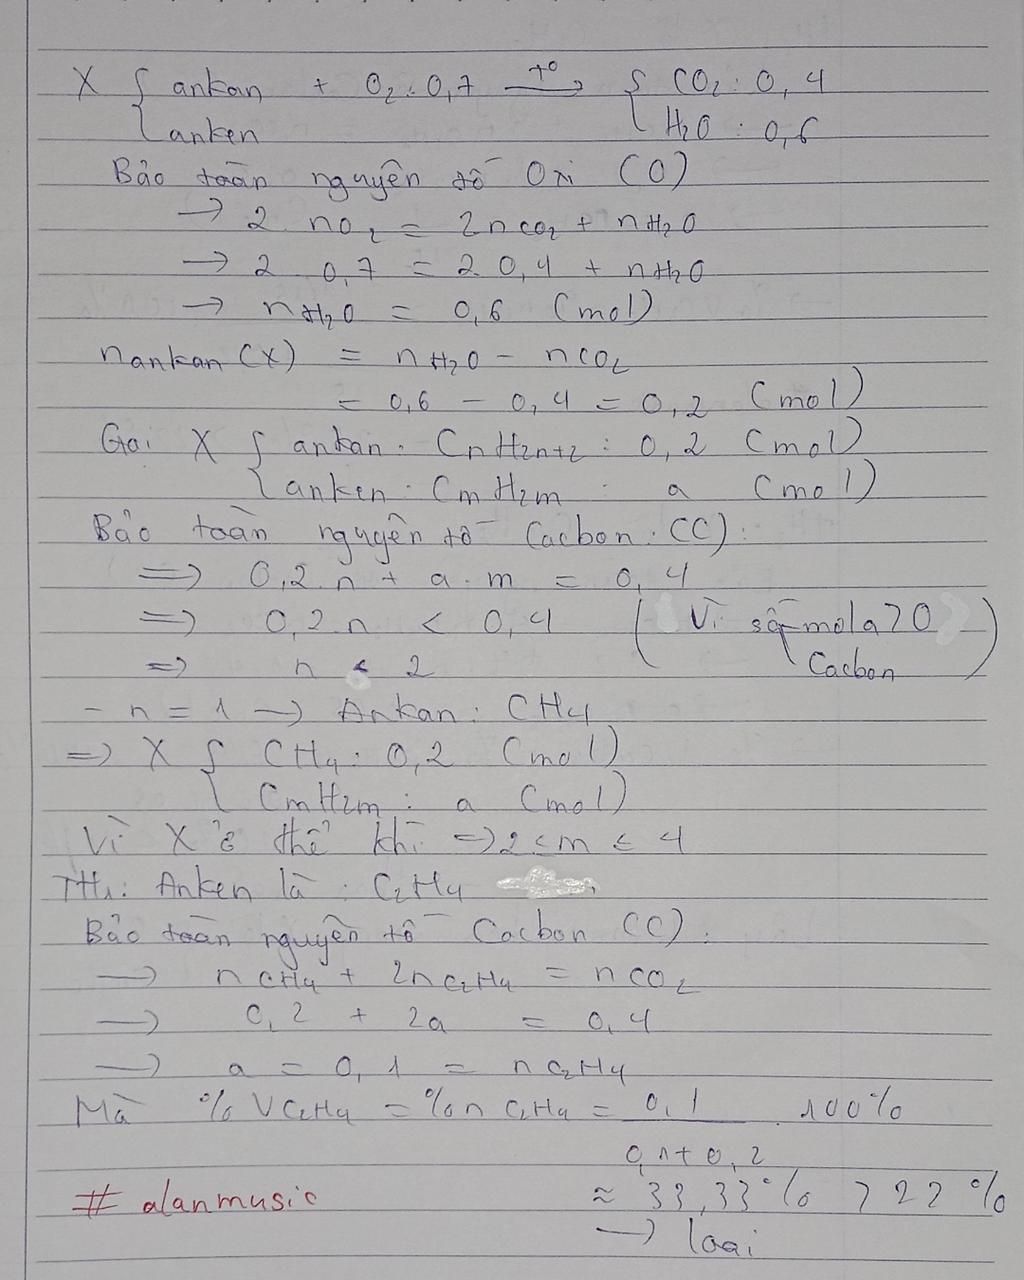 X { ankan + O₂: 0,7 —t°→ { CO₂: 0,4
anken H₂O: 0,6
Bảo toàn nguyên tố Oxi (O)
→ 2 nO₂ = 2nCO₂ + nH₂O
→ 2. 0,7 = 2. 0,4 + nH₂O
→ nH₂O = 0,6 (mol)
nankan (X) = nH₂O - nCO₂
= 0,6 - 0,4 = 0,2 (mol)
Gọi X { ankan. CnH2n+2 : 0,2 (mol)
anken. CmH2m : a (mol)
Bảo toàn nguyên tố Cacbon. (C):
=> 0,2.n + a.m = 0,4
=> 0,2.n < 0,4 (Vì số mol a>0)
Cacbon
=> n < 2
- n = 1 → Ankan: CH₄
=> X { CH₄: 0,2 (mol)
CmH2m: a (mol)
Vì X ở thể khí => 2 ≤ m ≤ 4
TH₁: Anken là: C₂H₄
Bảo toàn nguyên tố Cacbon (C):
→ nCH₄ + 2nC₂H₄ = nCO₂
→ 0,2 + 2a = 0,4
→ a = 0,1 = nC₂H₄
Mà %VC₂H₄ = %nC₂H₄ = 0,1 .100%
0,1+0,2
# alanmusic ≈ 33,33% > 22%
→ loại